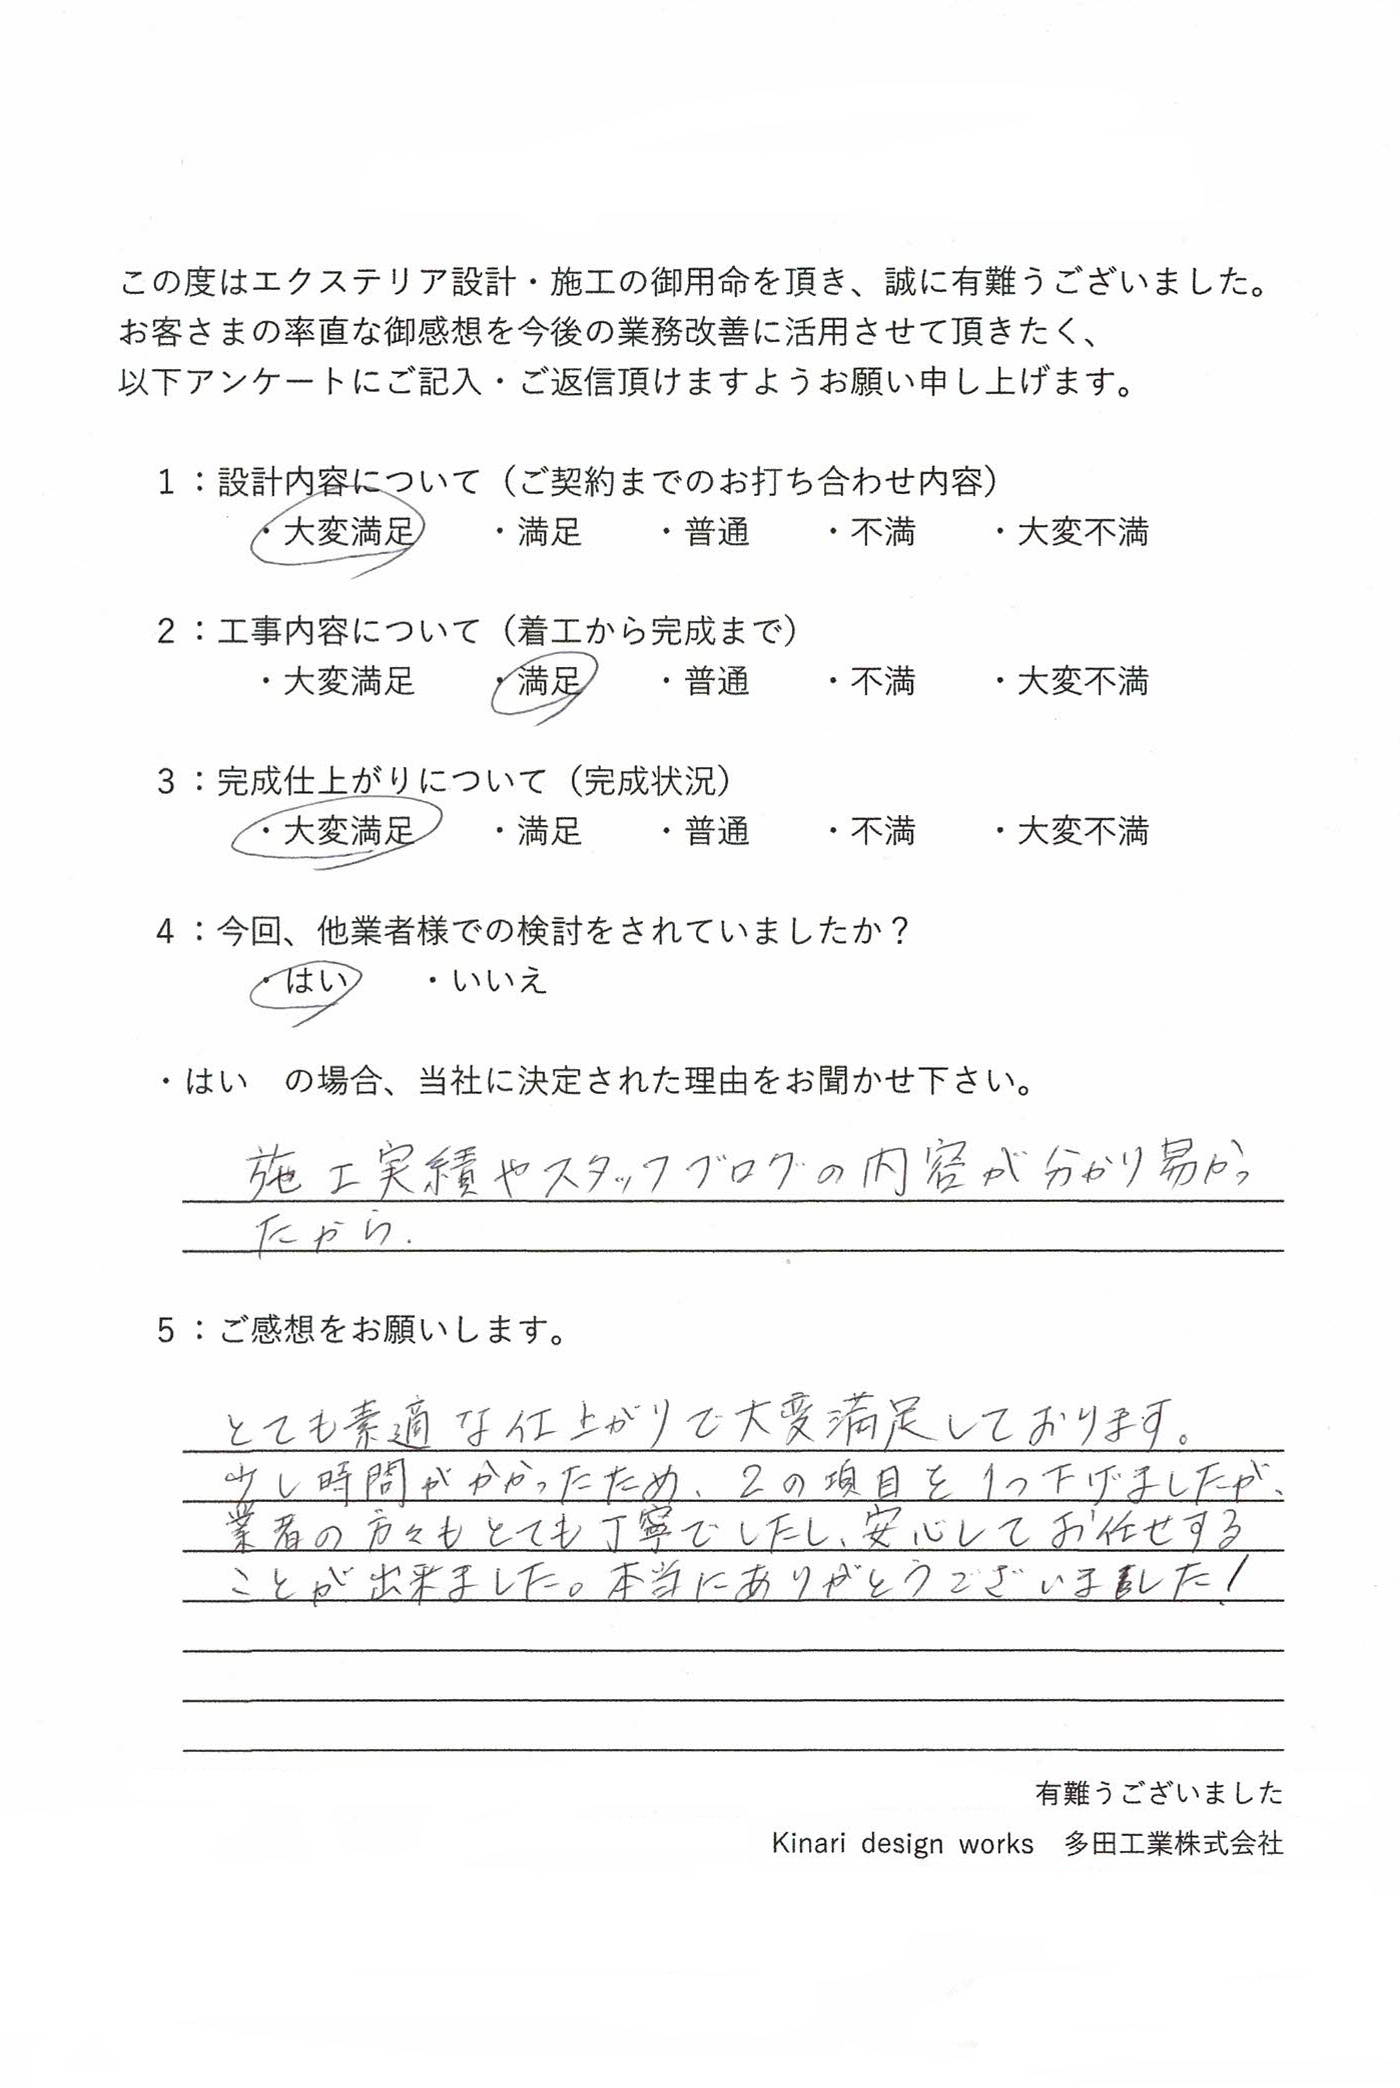 この度はエクステリア設計・施工の御用命を頂き、誠に有難うございました。
お客さまの率直な御感想を今後の業務改善に活用させて頂きたく、
以下アンケートにご記入・ご返信頂けますようお願い申し上げます。
1：設計内容について（ご契約までのお打ち合わせ内容）
・大変満足 ・満足 ・普通 ・不満 ・大変不満
2：工事内容について（着工から完成まで）
・大変満足 ・満足 ・普通 ・不満 ・大変不満
3：完成仕上がりについて（完成状況）
・大変満足 ・満足 ・普通 ・不満 ・大変不満
4：今回、他業者様での検討をされていましたか？
・はい ・いいえ
・はい　の場合、当社に決定された理由をお聞かせ下さい。
施工実績やスタッフブログの内容が分かり易かっ
たから.
5：ご感想をお願いします。
とても素適な仕上がりで大変満足しております。
少し時間がかかったため、2の項目を1つ下げましたが、
業者の方々もとても丁寧でしたし、安心してお任せする
ことが出来ました。本当にありがとうございました!
有難うございました
Kinari design works　多田工業株式会社